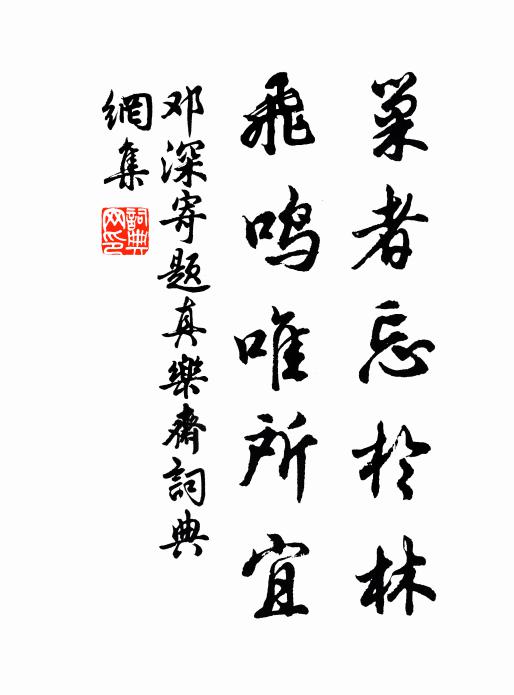 巢者忘於林
飛鳴唯所宜
邓深寄题真樂齋詞典
網集
詞典
网印